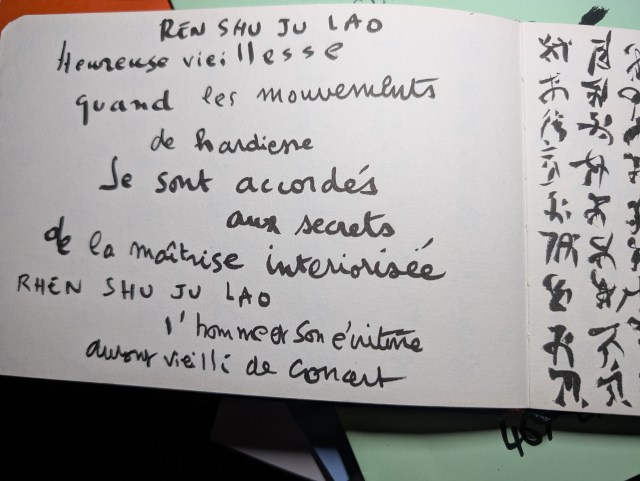 REN SHU JU LAO
Heureuse vieillesse
quand les mouvements
de hardiesse
se sont accordés
aux secrets
de la maîtrise interiorisée
RHEN SHU JU LAO
l'homme et son écriture
auront vieilli de concert